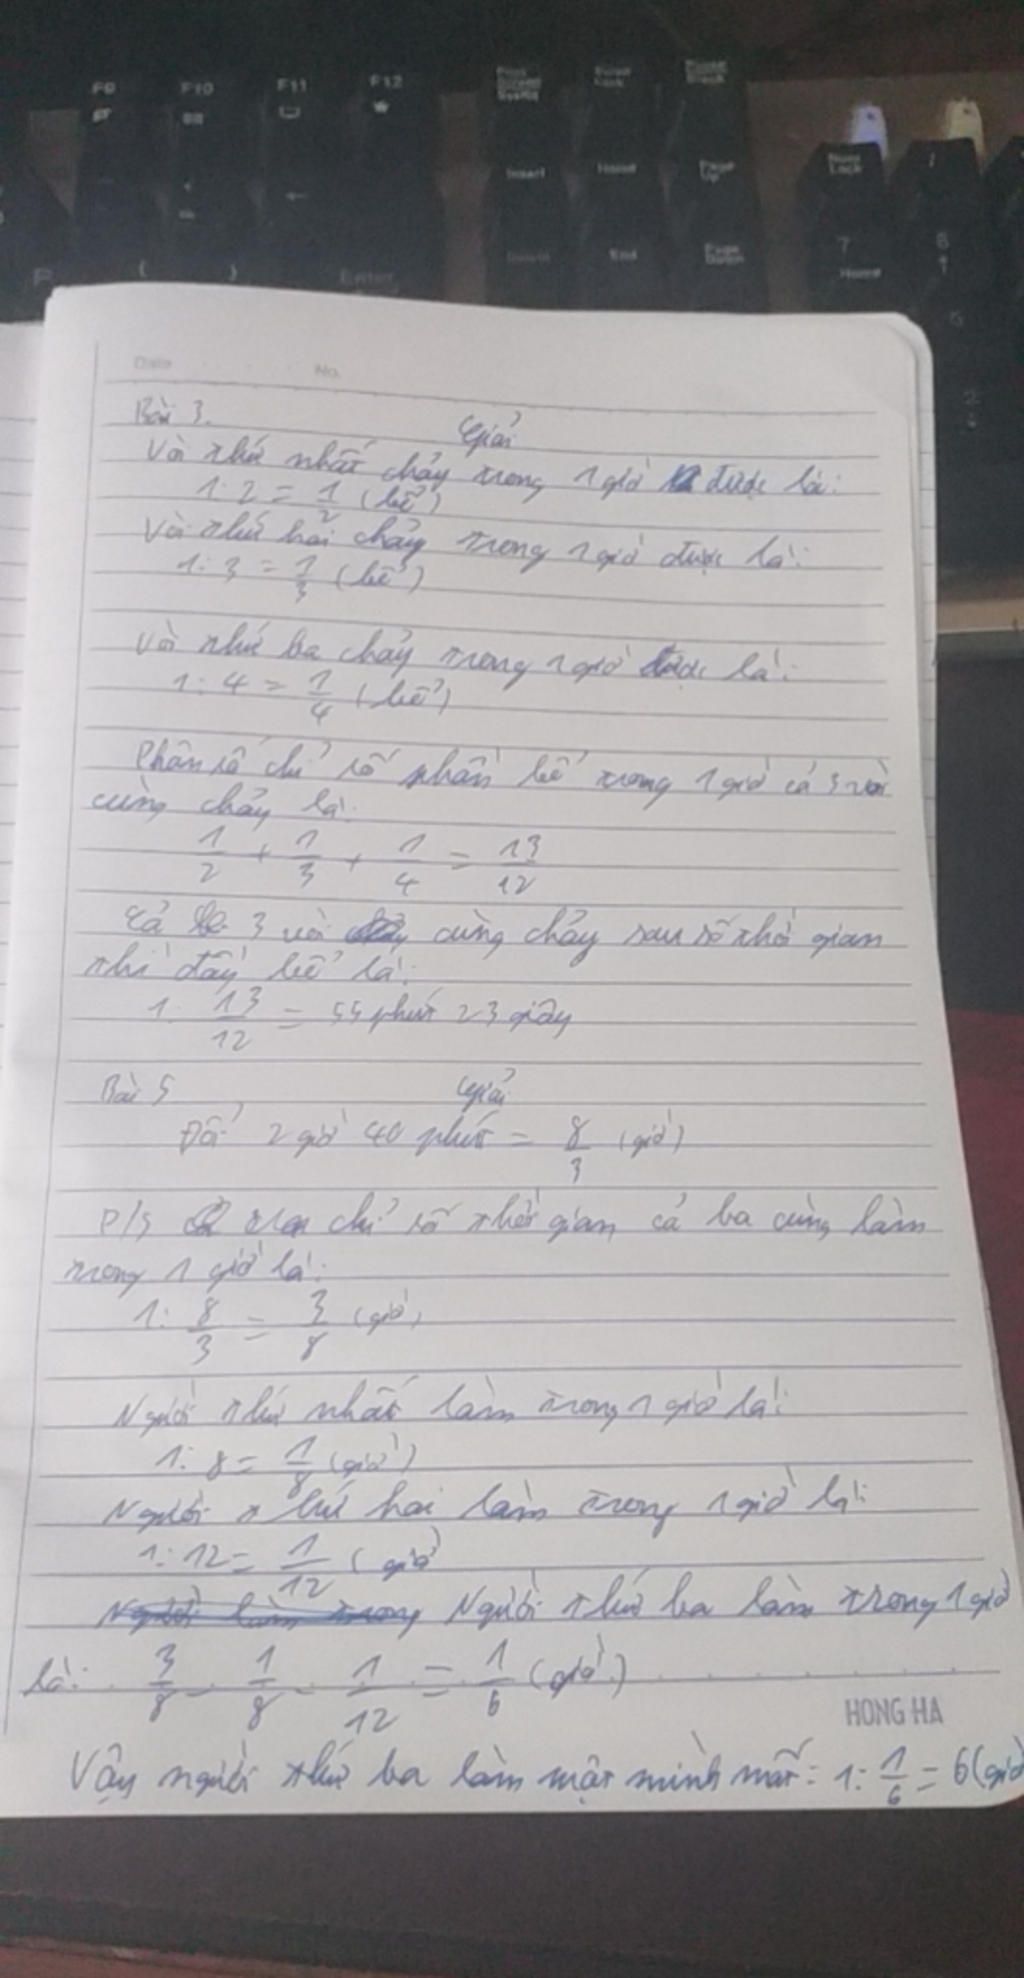 F9 F10 F11 F12
Insert Home Page Up
End Page Down
Num Lock
7 Home
8
Enter
Date No.
Bài 3. Giải
Vòi thứ nhất chảy trong 1 giờ được là:
1:2 = 1/2 (bể)
Vòi thứ hai chảy trong 1 giờ được là:
1:3 = 1/3 (bể)
Vòi thứ ba chảy trong 1 giờ được là:
1:4 = 1/4 (bể)
Phân số chỉ số phần bể trong 1 giờ cả 3 vòi
cùng chảy là:
1/2 + 1/3 + 1/4 = 13/12
Cả 3 vòi cùng chảy sau số thời gian
thì đầy bể là:
1: 13/12 = 55 phút 23 giây
Bài 5 Giải
Đổi 2 giờ 40 phút = 8/3 (giờ)
P/S chỉ số thời gian cả ba cùng làm
trong 1 giờ là:
1: 8/3 = 3/8 (giờ)
Người thứ nhất làm trong 1 giờ là:
1: 8 = 1/8 (giờ)
Người thứ hai làm trong 1 giờ là:
1: 12 = 1/12 (giờ)
Người thứ ba làm trong 1 giờ
là: 3/8 - 1/8 - 1/12 = 1/6 (giờ)
HONG HA
Vậy người thứ ba làm một mình mất: 1: 1/6 = 6 (giờ